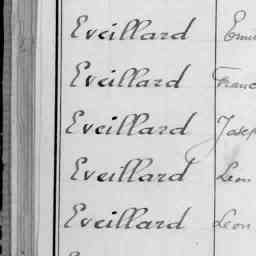 Eveillard Emi
Eveillard Franc
Eveillard Josep
Eveillard Leon
Eveillard Leon